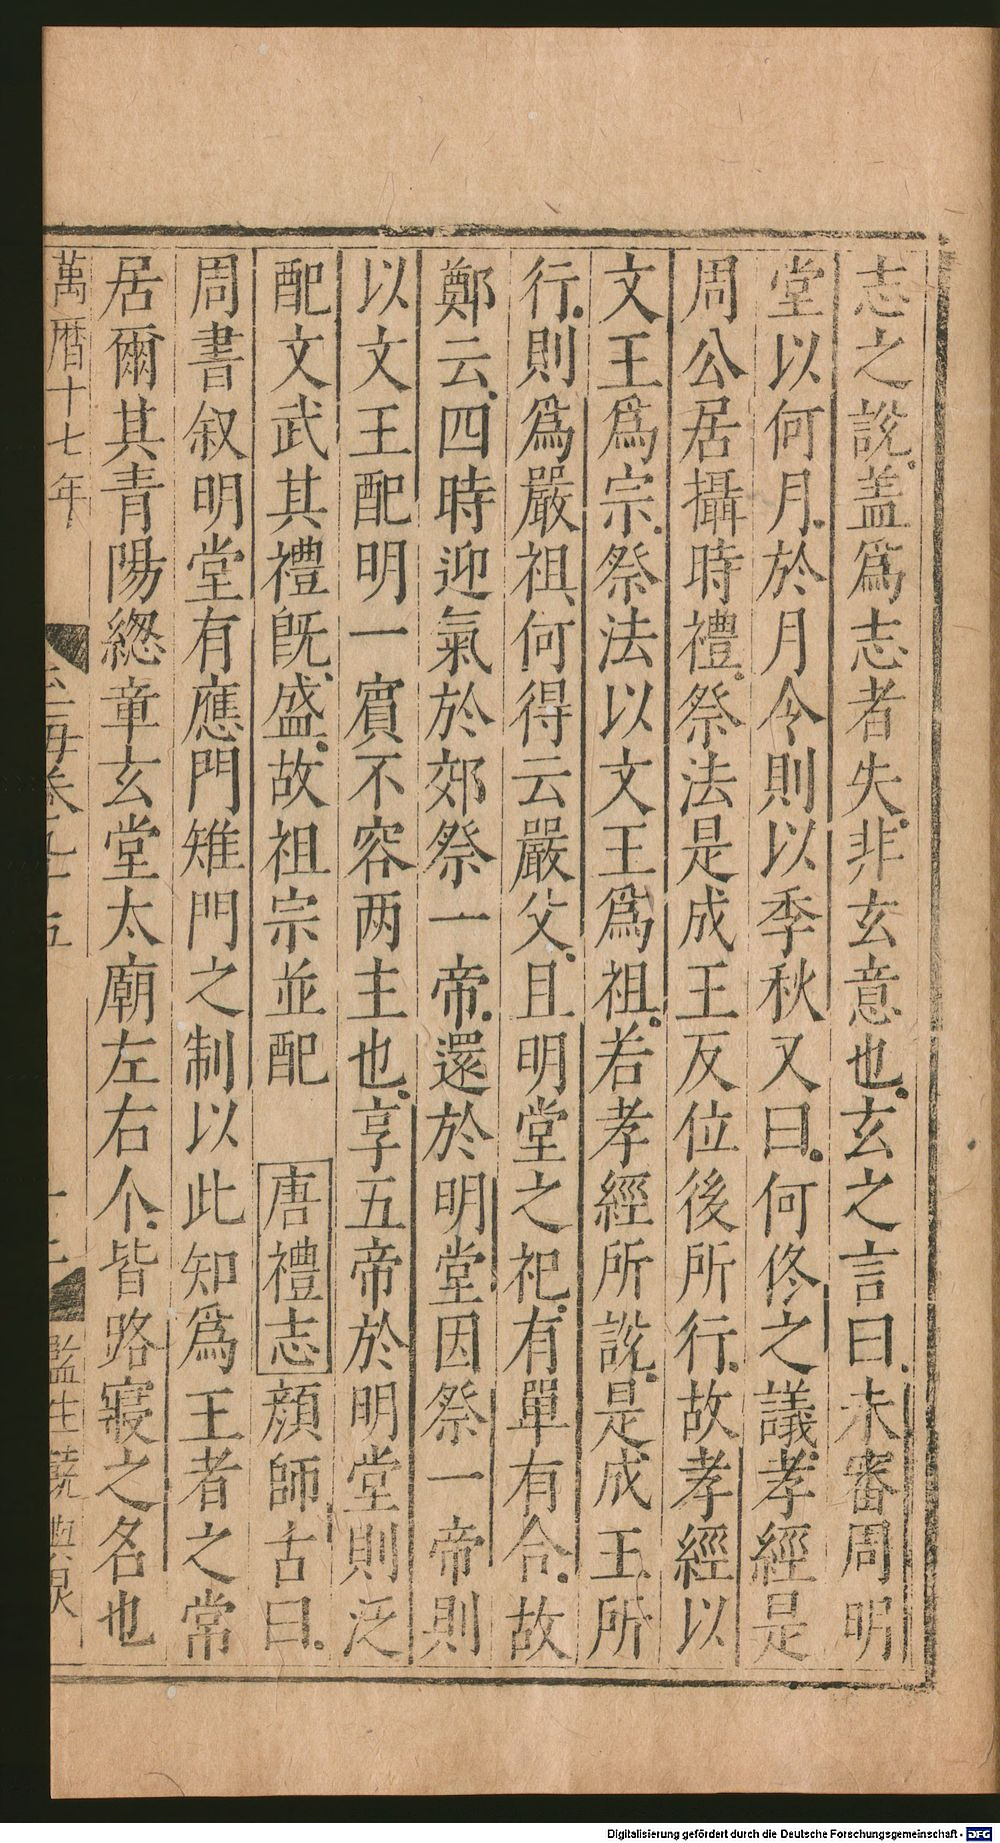 志之說蓋爲志者失非玄意也玄之言曰未審周明
堂以何月於月令則以季秋又曰何佟之議孝經是
周公居攝時禮祭法是成王反位後所行故孝經以
文王爲宗祭法以文王爲祖若孝經所說是成王所
行則爲嚴祖何得云嚴父且明堂之祀有單有合故
鄭云四時迎氣於郊祭一帝還於明堂因祭一帝則
以文王配明一賓不容两主也享五帝於明堂則泛
配文武其禮旣盛故祖宗並配 唐禮志 顏師古曰
周書叙明堂有應門雉門之制以此知爲王者之常
居爾其青陽緫章玄堂太廟左右个皆路寢之名也
萬曆十七年
玉海卷九十五
監生饒與泉
Digitalisierung gefördert durch die Deutsche Forschungsgemeinschaft - DFG